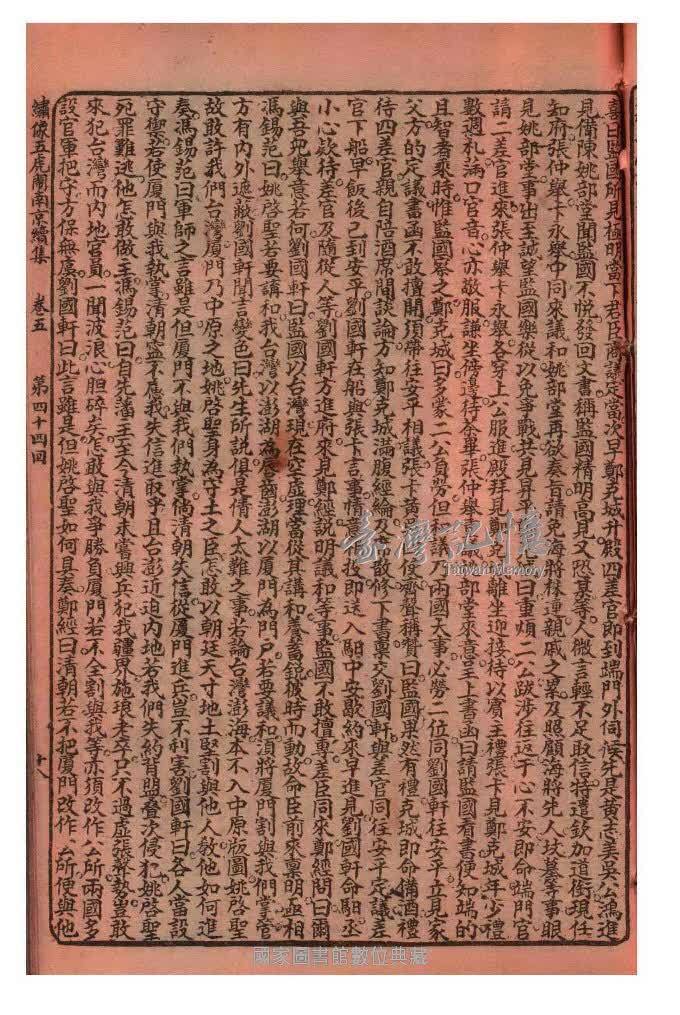 喜曰監國所見極明當下君臣商議定當次早鄭克城升殿四差官即到端門外伺候先是黃志美吳公鴻進
見備陳姚部堂聞監國不悅發回文書稱監國精明高見又恐某等人微言輕不足取信特遣欽加道銜現任
知府張仲舉卞永舉中同來議和姚部堂再欲奏旨請免海將株連親戚之累及照顧海將先人坟墓等事眼
見姚部堂事出至誠望監國樂從以免爭戰共見昇平 曰重煩二公跋涉往返于心不安即命端門官
請二差官進來張仲舉卞永舉各穿上公服進殿拜見鄭克 離坐迎接待以賓王禮張卞見鄭克城年少禮
數週札滿口官音心亦敬服謙坐傍邊待茶畢張仲舉 部堂來意呈上書函曰請監國看書便知端的
且智者乘時惟監國察之鄭克城曰多蒙二公負勞但 議乃兩國大事必勞二位同劉國軒往安平立見家
父方的定議書函不敢擅開須帶往安平相議張卞黃 使齊聲稱贊曰監國果然有禮克城即命備酒禮
待四差官親自陪酒席間談論方知鄭克城滿腹經綸及 散修下書禀交劉國軒與差官同往安平定議差
官下船早飯後已到安平劉國軒在船與張卞言事情 投即送入馹中安歇約來早進見劉國軒命馹丞
小心欵待差官及隨從人等劉國軒方進府來見鄭經説明議和等事監國不敢擅專差臣同來鄭經問曰爾
與吾兒舉意若何劉國軒曰監國以台灣現在空虛理當從其講和養蓄銳彼時而動故命臣前來禀明丞相
馮錫范曰姚啓聖若要講和我台灣以澎湖為唇齒澎湖以厦門為門户若要議和須將厦門割與我們掌管
方有內外遮蔽劉國軒聞言變色曰先生所説俱是倩人太難之事若論台灣澎海本不入中原版圖姚啓聖
故敢許我們台灣厦門乃中原之地姚啓聖身為守土之臣怎敢以朝廷天寸地土堅割與他人教他如何進
奏馮錫范曰軍師之言雖是但厦門不與我們執掌倘清朝失信從厦門進兵豈不利害劉國軒曰各人當設
守禦若使厦門與我執掌清朝寧不應我失信進取乎且台澎近迫內地若我們失約背盟叠次侵犯姚啓聖
死罪難逃他怎敢做主馮錫范曰自先藩王至今清朝未嘗興兵犯我疆界施琅老卒只不過虛張聲勢豈敢
來犯台灣而內地官員一聞波浪心胆碎矣怎敢與我爭勝負厦門若不全割與我等亦須改作公所兩國多
設官軍把守方保無虞劉國軒曰此言雖是但姚啓聖如何具奏鄭經曰清朝若不把厦門改作公所便與他
繡像五虎鬧南京續集 卷五 第四十四回 十八
臺灣記憶
Taiwan Memory
國家圖書館數位典藏